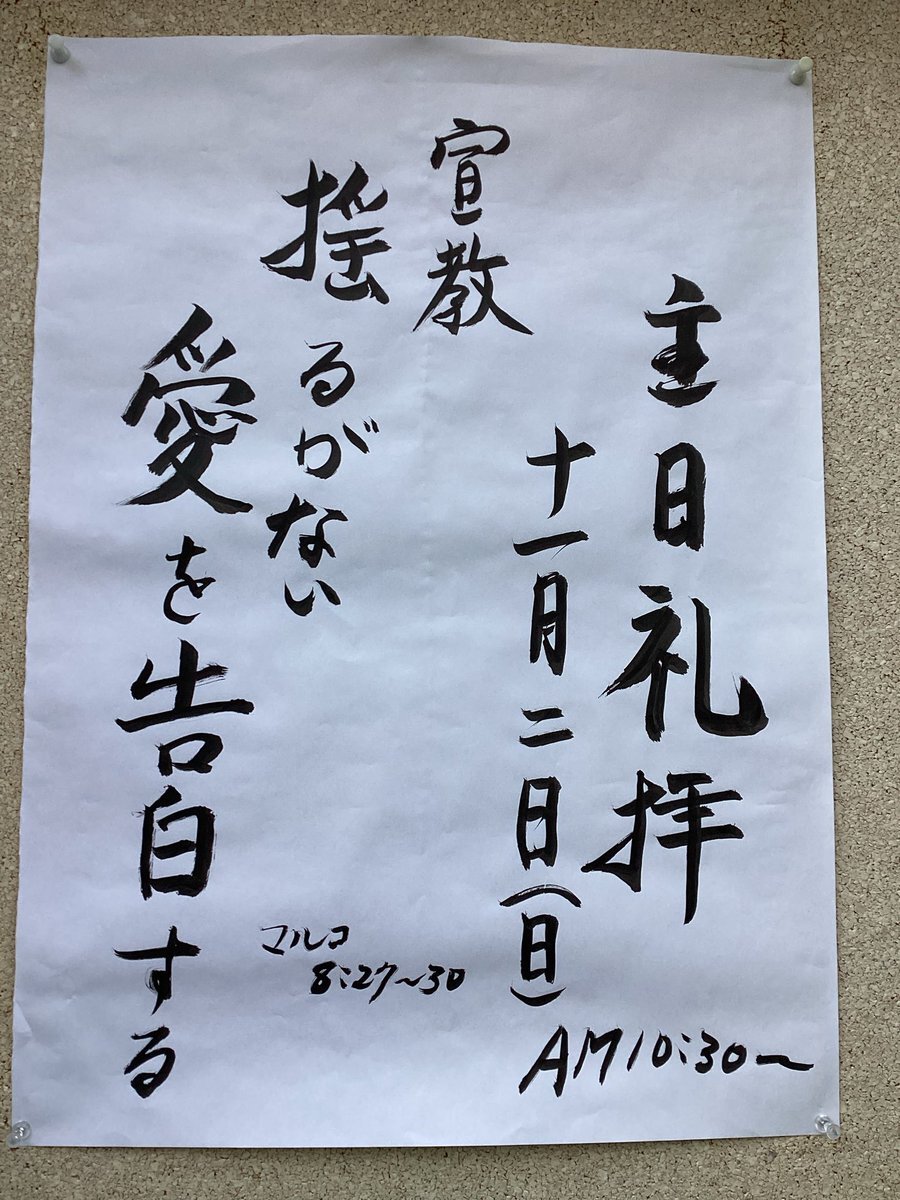 主日礼拝
十一月二日(日)
AM10:30〜
宣教
揺るがない
愛を告白する
マルコ
8:27〜30